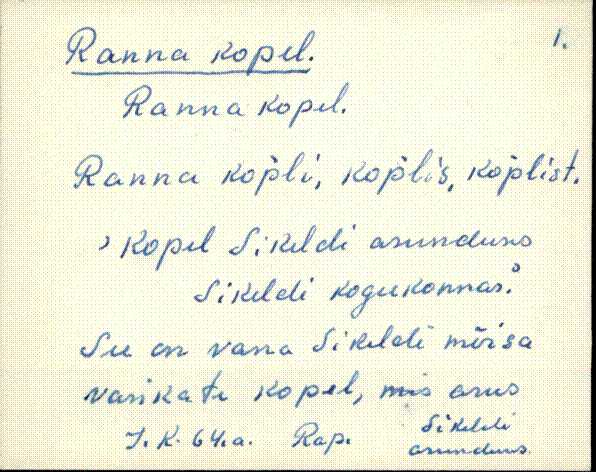 1.
Ranna kopel.
Ranna kopel.
Ranna kopli, koplis, koplist.
, kopel Sikeldi asunduus
Sikeldi kogukonnas.
See on vana Sikeldi mõisa
vasikate kopel, mis asus
J. K. 64. a. Rap. Sikeldi
asunduus.